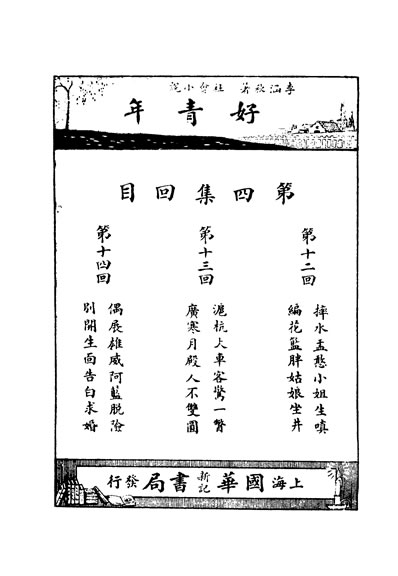 李涵秋著 社會小說
好青年
第四集回目
第十二回
摔水盂憨小姐生嗔
編花籃胖姑娘坐井
第十三回
滬杭火車客驚一瞥
廣寒月殿人不雙圓
第十四回
偶展雄威阿藍脫險
別開生面告白求婚
上海國華新記書局發行